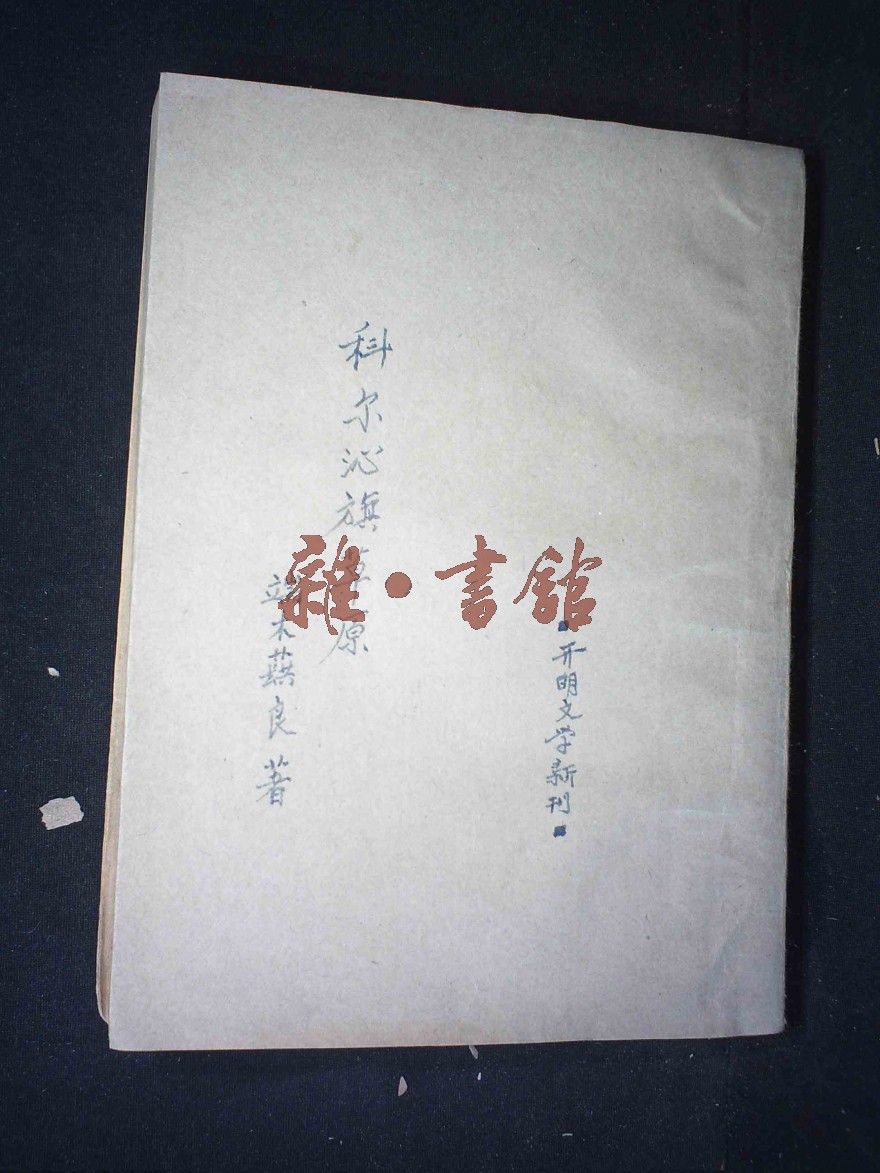 ■开明文学新刊■
科尔沁旗草原
端木蕻良 著
雜·書館